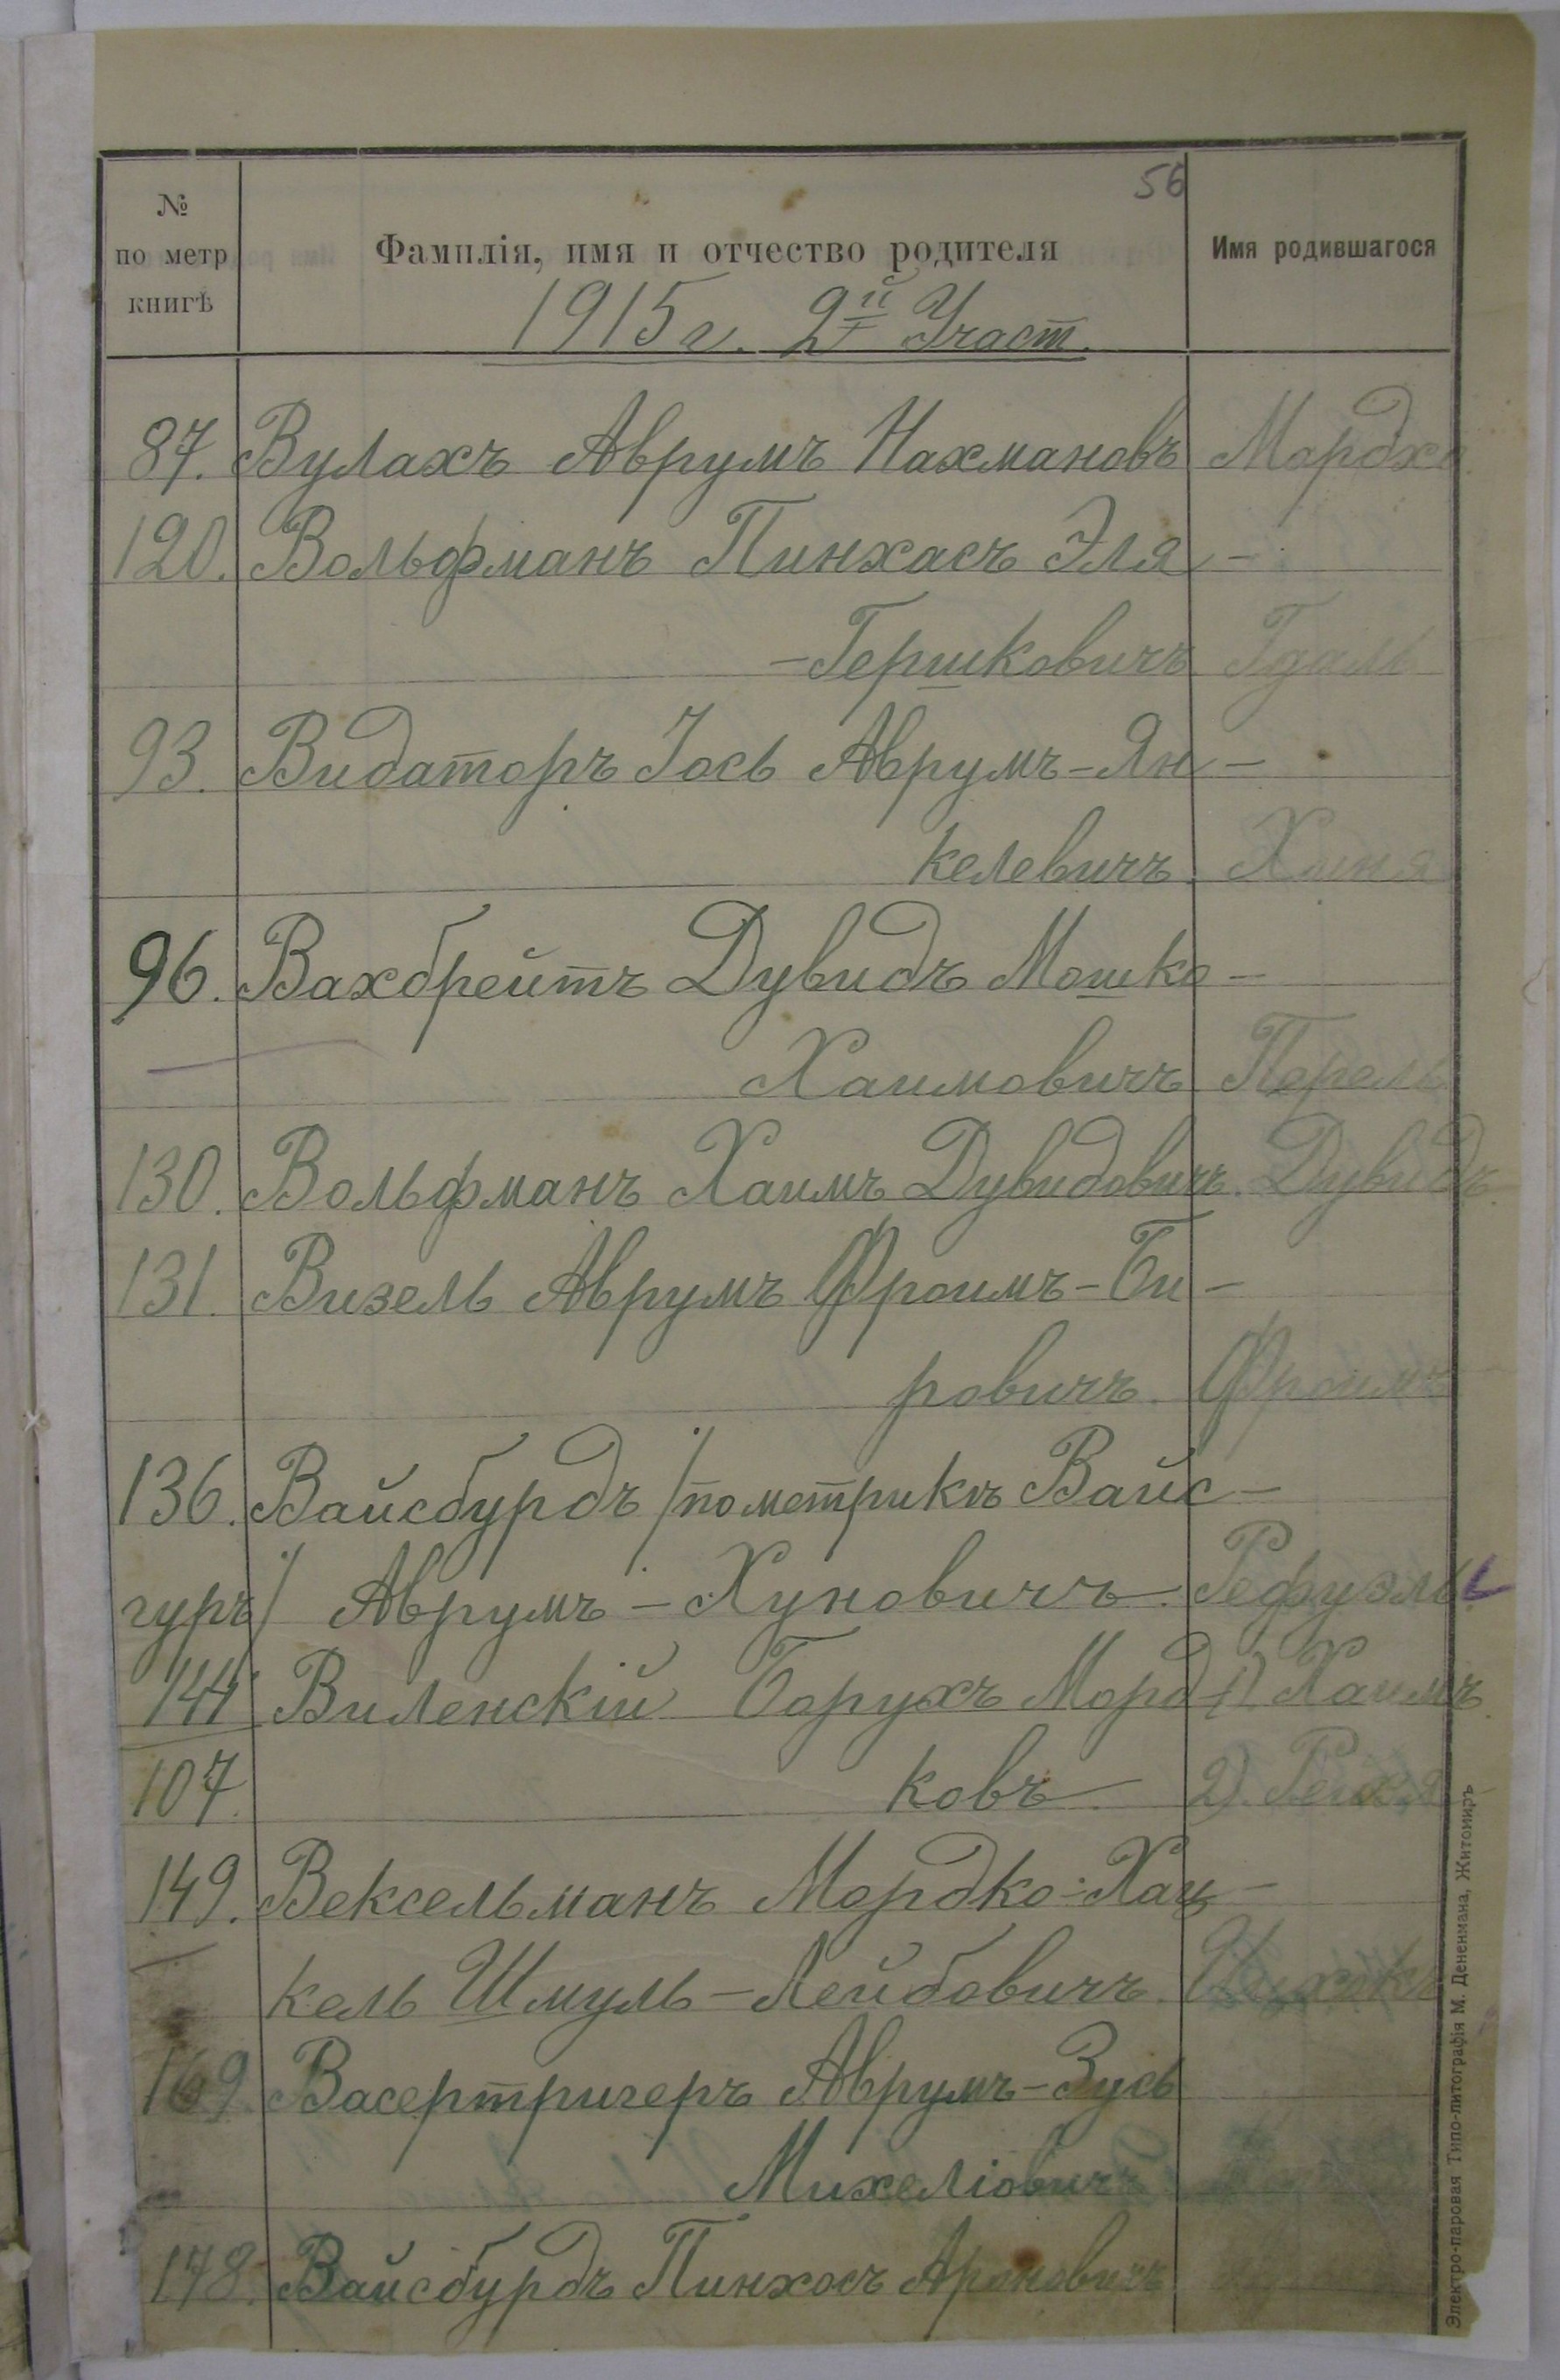 56
№
по метр
книгѣ
Фамилія, имя и отчество родителя
Имя родившагося
1915 г. 2й Участ.
87. Вулахъ Аврумъ Нахмановъ Мордхо
120. Вольфманъ Пинхасъ Эля -
-Гершковичъ Гдаль
93. Видаторъ Іось Аврумъ-Ян-
келевичъ. Ханя
96. Вахбрейтъ Дувидъ Мошко-
Хаимовичъ Перель
130. Вольфманъ Хаимъ Дувидовичъ. Дувидъ
131. Визель Аврумъ Фроимъ-Би-
ровичъ. Фроимъ
136. Вайсбурдъ /по метрикѣ Вайс-
гуръ/ Аврумъ-Хуновичъ Рефуэль
144 Виленскій Борухъ Мор­д- 1) Хаимъ
107. ковъ 2). Рейзя
149. Вексельманъ Мордко-Хац-
кель Шмуль-Лейбовичъ. Ицхокъ
169. Васертригеръ Аврумъ-Зусь
Михеліовичъ
178. Вайсбурдъ Пинхосъ Ароновичъ
Электро-паровая Типо-литографія М. Дененмана, Житомиръ